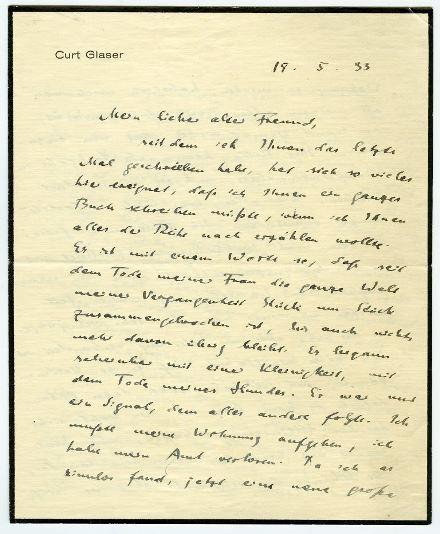 Curt Glaser
19. 5. 33
Mein lieber alter Freund,
seit dem ich Ihnen das letzte
Mal geschrieben habe, hat sich so vieles
hier ereignet, daß ich Ihnen ein ganzes
Buch schreiben müßte, wenn ich Ihnen
alles der Reihe nach erzählen wollte.
Es ist mit einem Worte so, daß seit
dem Tode meiner Frau die ganze Welt
meiner Vergangenheit Stück um Stück
zusammengebrochen ist, bis auch nichts
mehr davon übrig bleibt. Es begann
scheinbar mit einer Kleinigkeit, mit
dem Tode meines Hundes. Es war nur
ein Signal, dem alles andere folgte. Ich
mußte meine Wohnung aufgeben, ich
habe mein Amt verloren. Da ich es
sinnlos fand, jetzt eine neue große